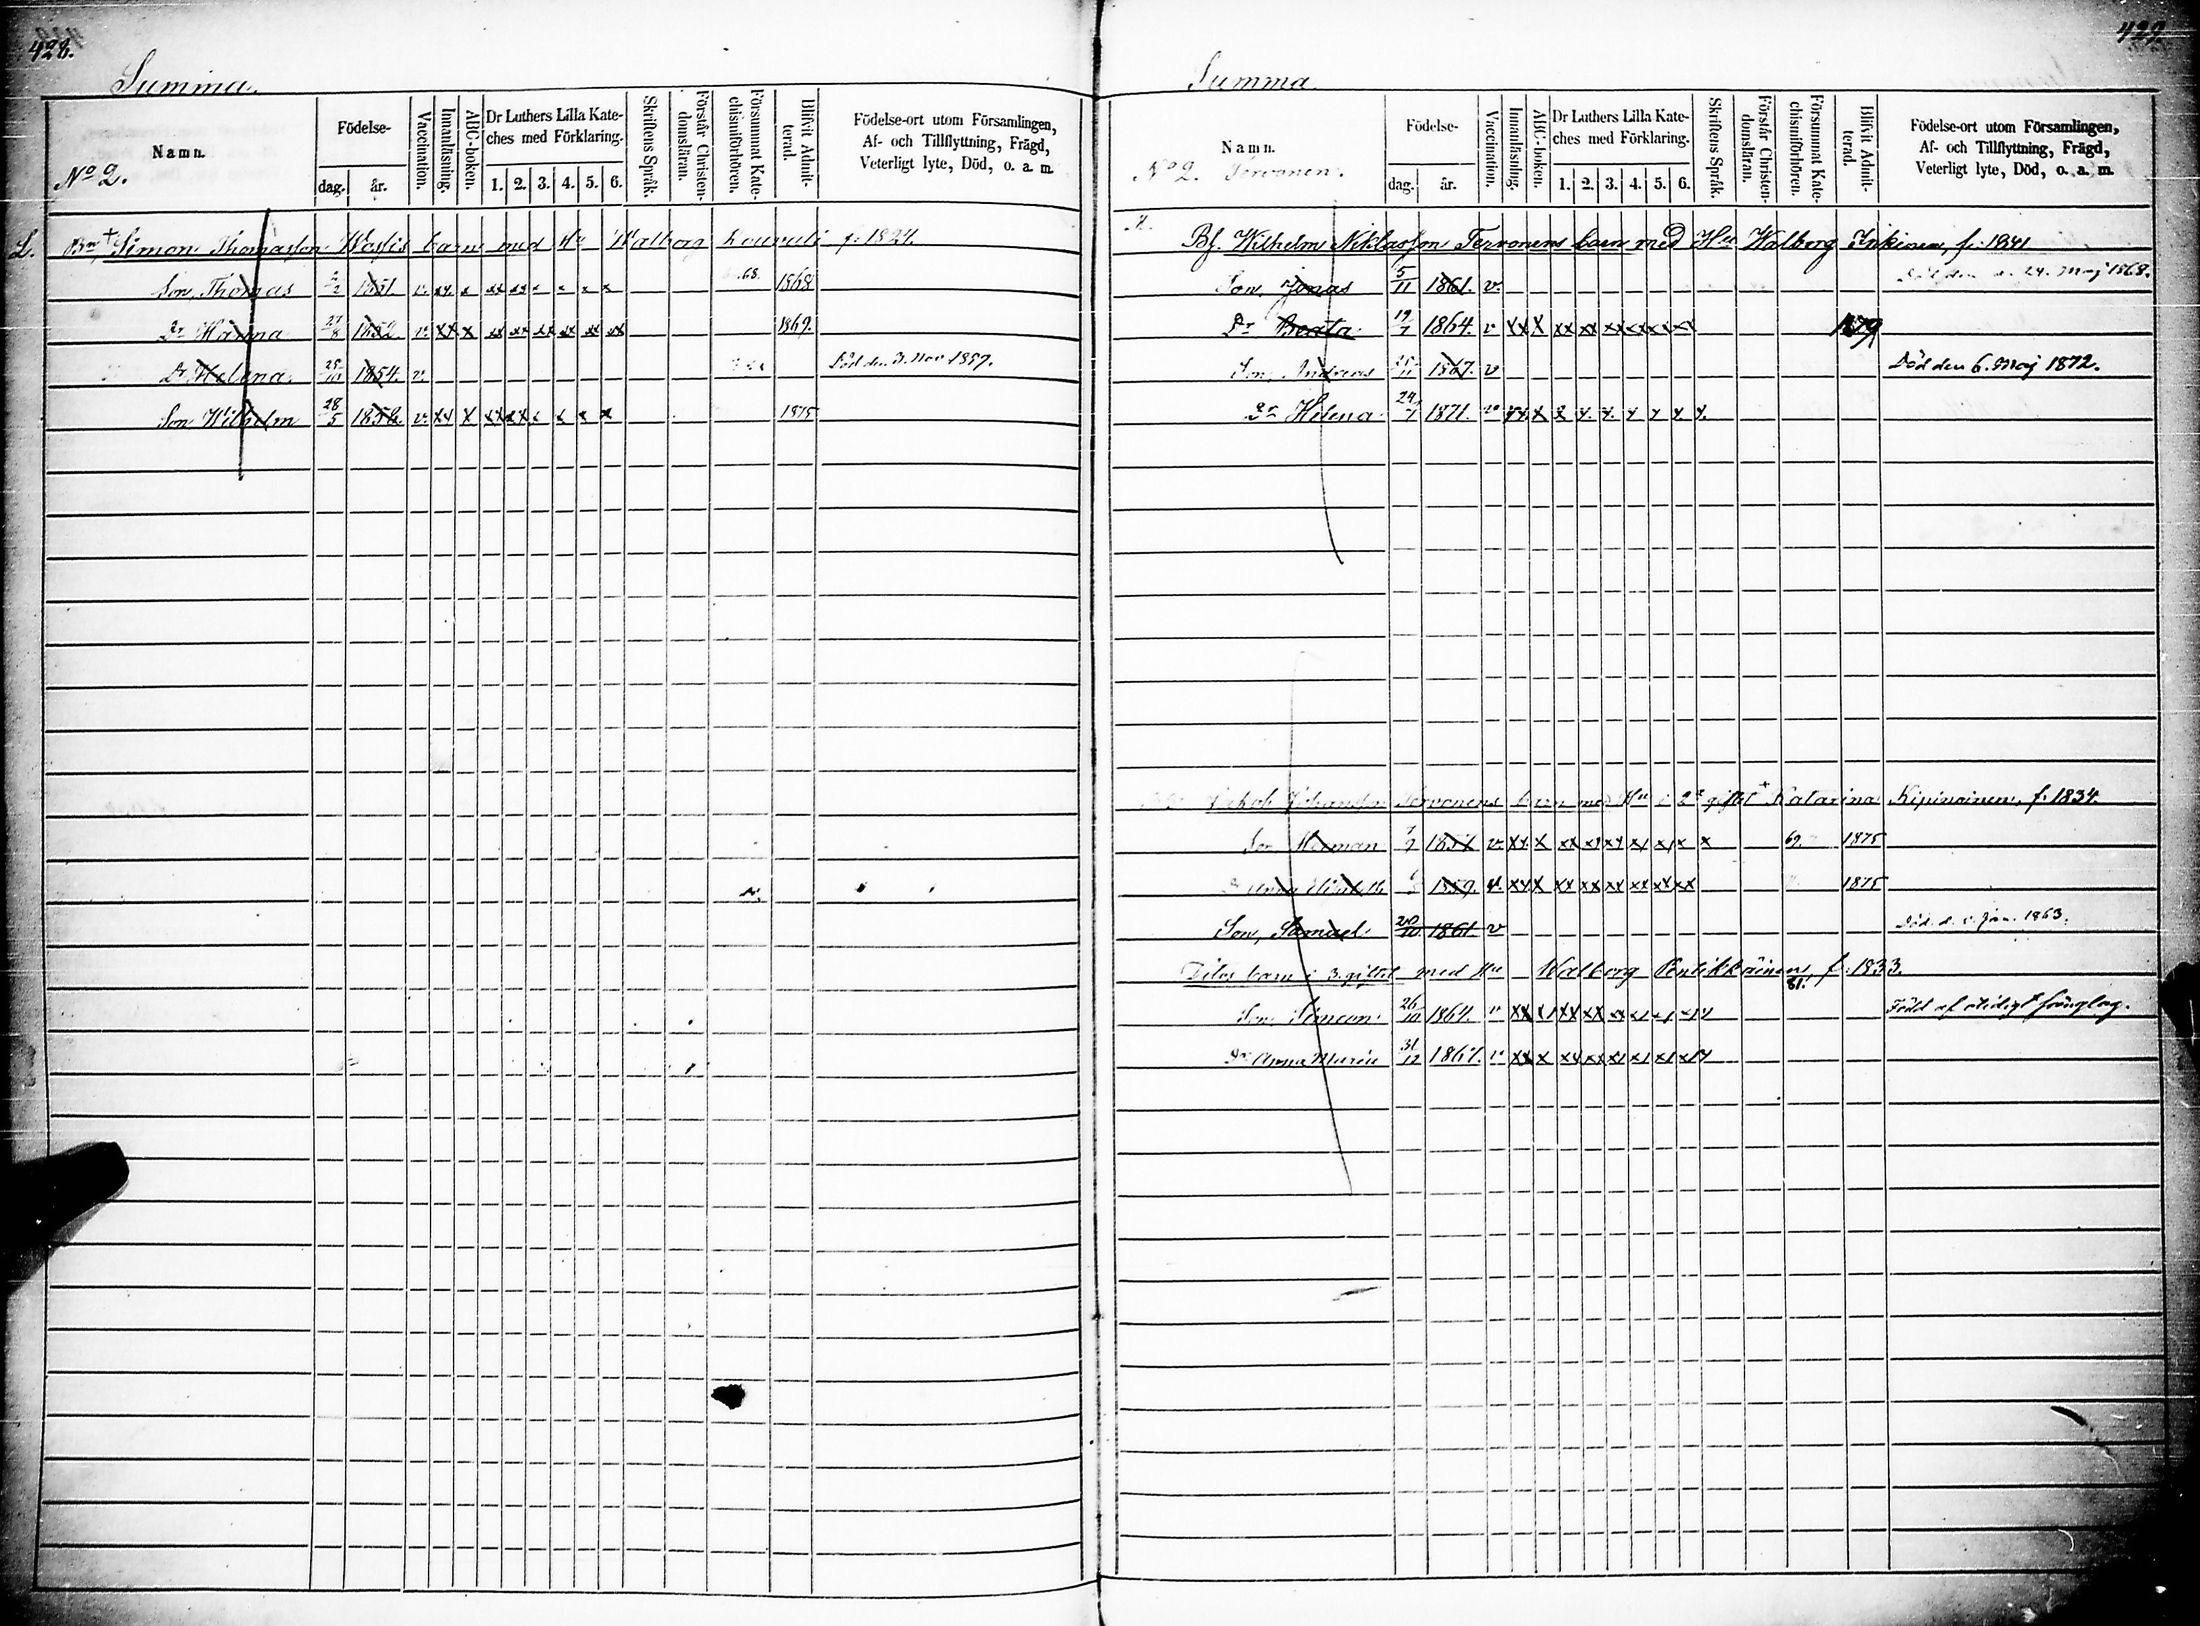 428.
Summa.
Namn.
No 2.
Födelse-
dag.
år.
Vaccination.
Innanläsning.
ABC-boken.
Dr Luthers Lilla Kate-
ches med Förklaring.
1. 2. 3. 4. 5. 6.
Skriftens Språk.
Förstår Christen-
domsläran.
Försummat Kate-
chismiförhören.
Blifvit Admit-
terad.
Födelse-ort utom Församlingen,
Af- och Tillflyttning, Frägd,
Veterligt lyte, Död, o. a. m.
L. + Simon Thomasson barn med Hu Walborg f. 1824.
Son, Thomas 1851. v. xx x xx xx x x x x 68. 1868
Dr Hanna 27/8 1852. v. xx x xx xx xx xx xx xx 1869.
Dr Helena 25/10 1854. v. Död den 3. Nov 1857.
Son Wilhelm 28/5 1856. v. xx x xx xx x x x x 1875
429.
Summa.
Namn.
No 2. Tervonen.
Födelse-
dag.
år.
Vaccination.
Innanläsning.
ABC-boken.
Dr Luthers Lilla Kate-
ches med Förklaring.
1. 2. 3. 4. 5. 6.
Skriftens Språk.
Förstår Christen-
domsläran.
Försummat Kate-
chismiförhören.
Blifvit Admit-
terad.
Födelse-ort utom Församlingen,
Af- och Tillflyttning, Frägd,
Veterligt lyte, Död, o. a. m.
Bf. Wilhelm Niklasson Tervonens barn med Hu Walborg Inkinen, f. 1841
Son, Jonas 5/11 1861. v. Död den 24. Maj 1868.
Dr Beata 19/7 1864. v xx x xx xx xx xx xx xx 1879
Son, Andreas 25/11 1867. v Död den 6. Maj 1872.
Dr Helena 24/7 1871. v xx x x x. x. x x x x.
Jakob Johansson Tervonens barn med Hu i 2a giftet + Katarina Kipinoinen, f. 1834.
Son Herman 1857 v. xx x xx xx xx x x x x 69 1875
Dr Anna Elisabeth 1859. v. xx x xx xx xx xx xx xx 1875
Son, Samuel 20/10 1861. v Död d. Jan. 1863.
Dito barn i 3. giftet med Hu Walborg Pentikkäinen, f. 1833.
81.
Son, Simeon 26/10 1864. v Född af otidigt sänglag.
Dr Anna Maria 31/12 1867. v xx x xx xx